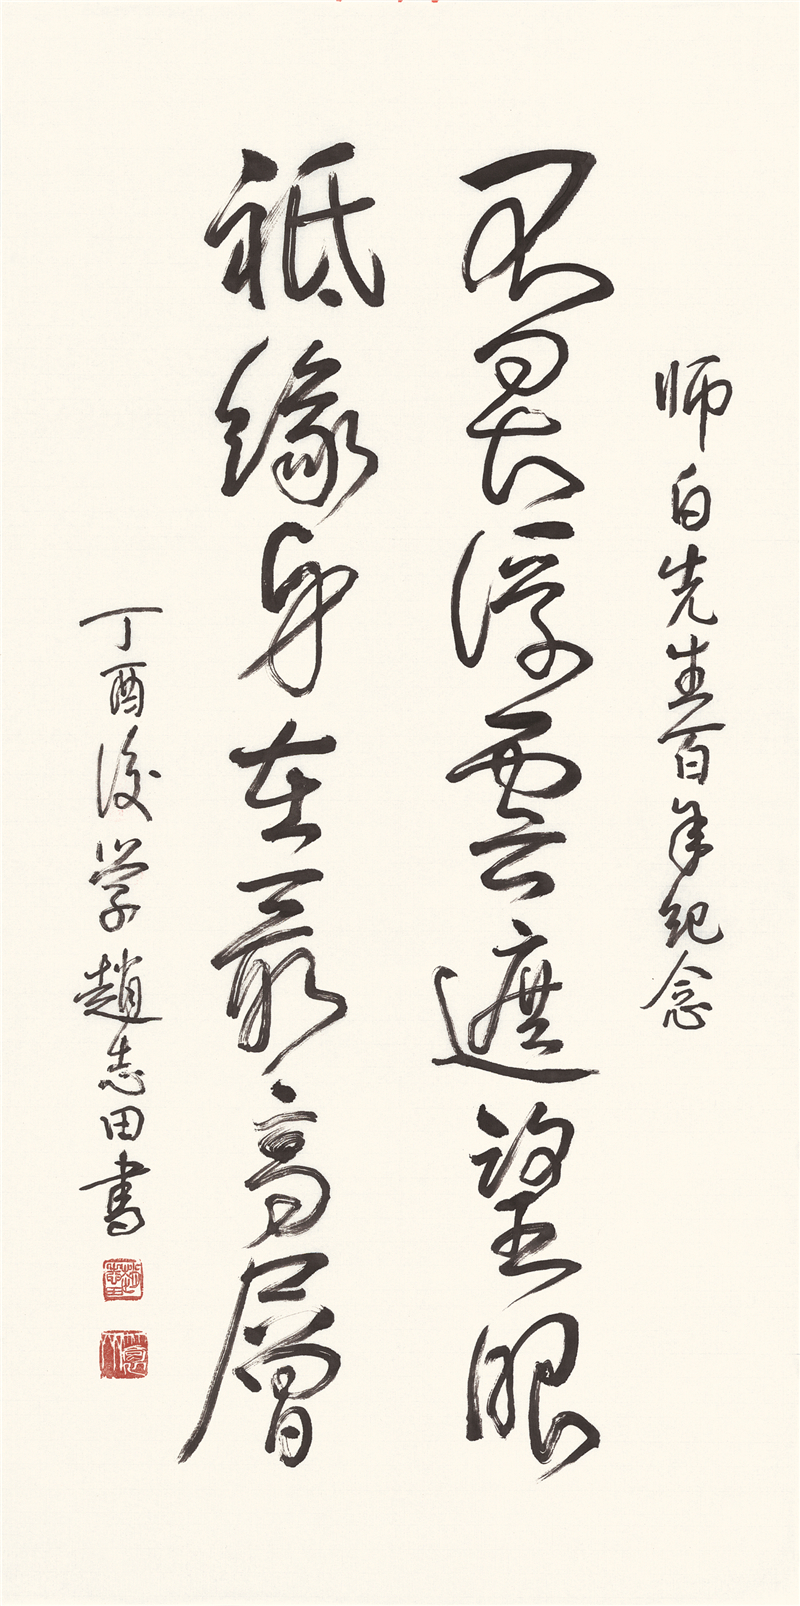 师白先生百年纪念
不畏浮雲遮望眼
祗缘身在最高層
丁酉後学趙志田書